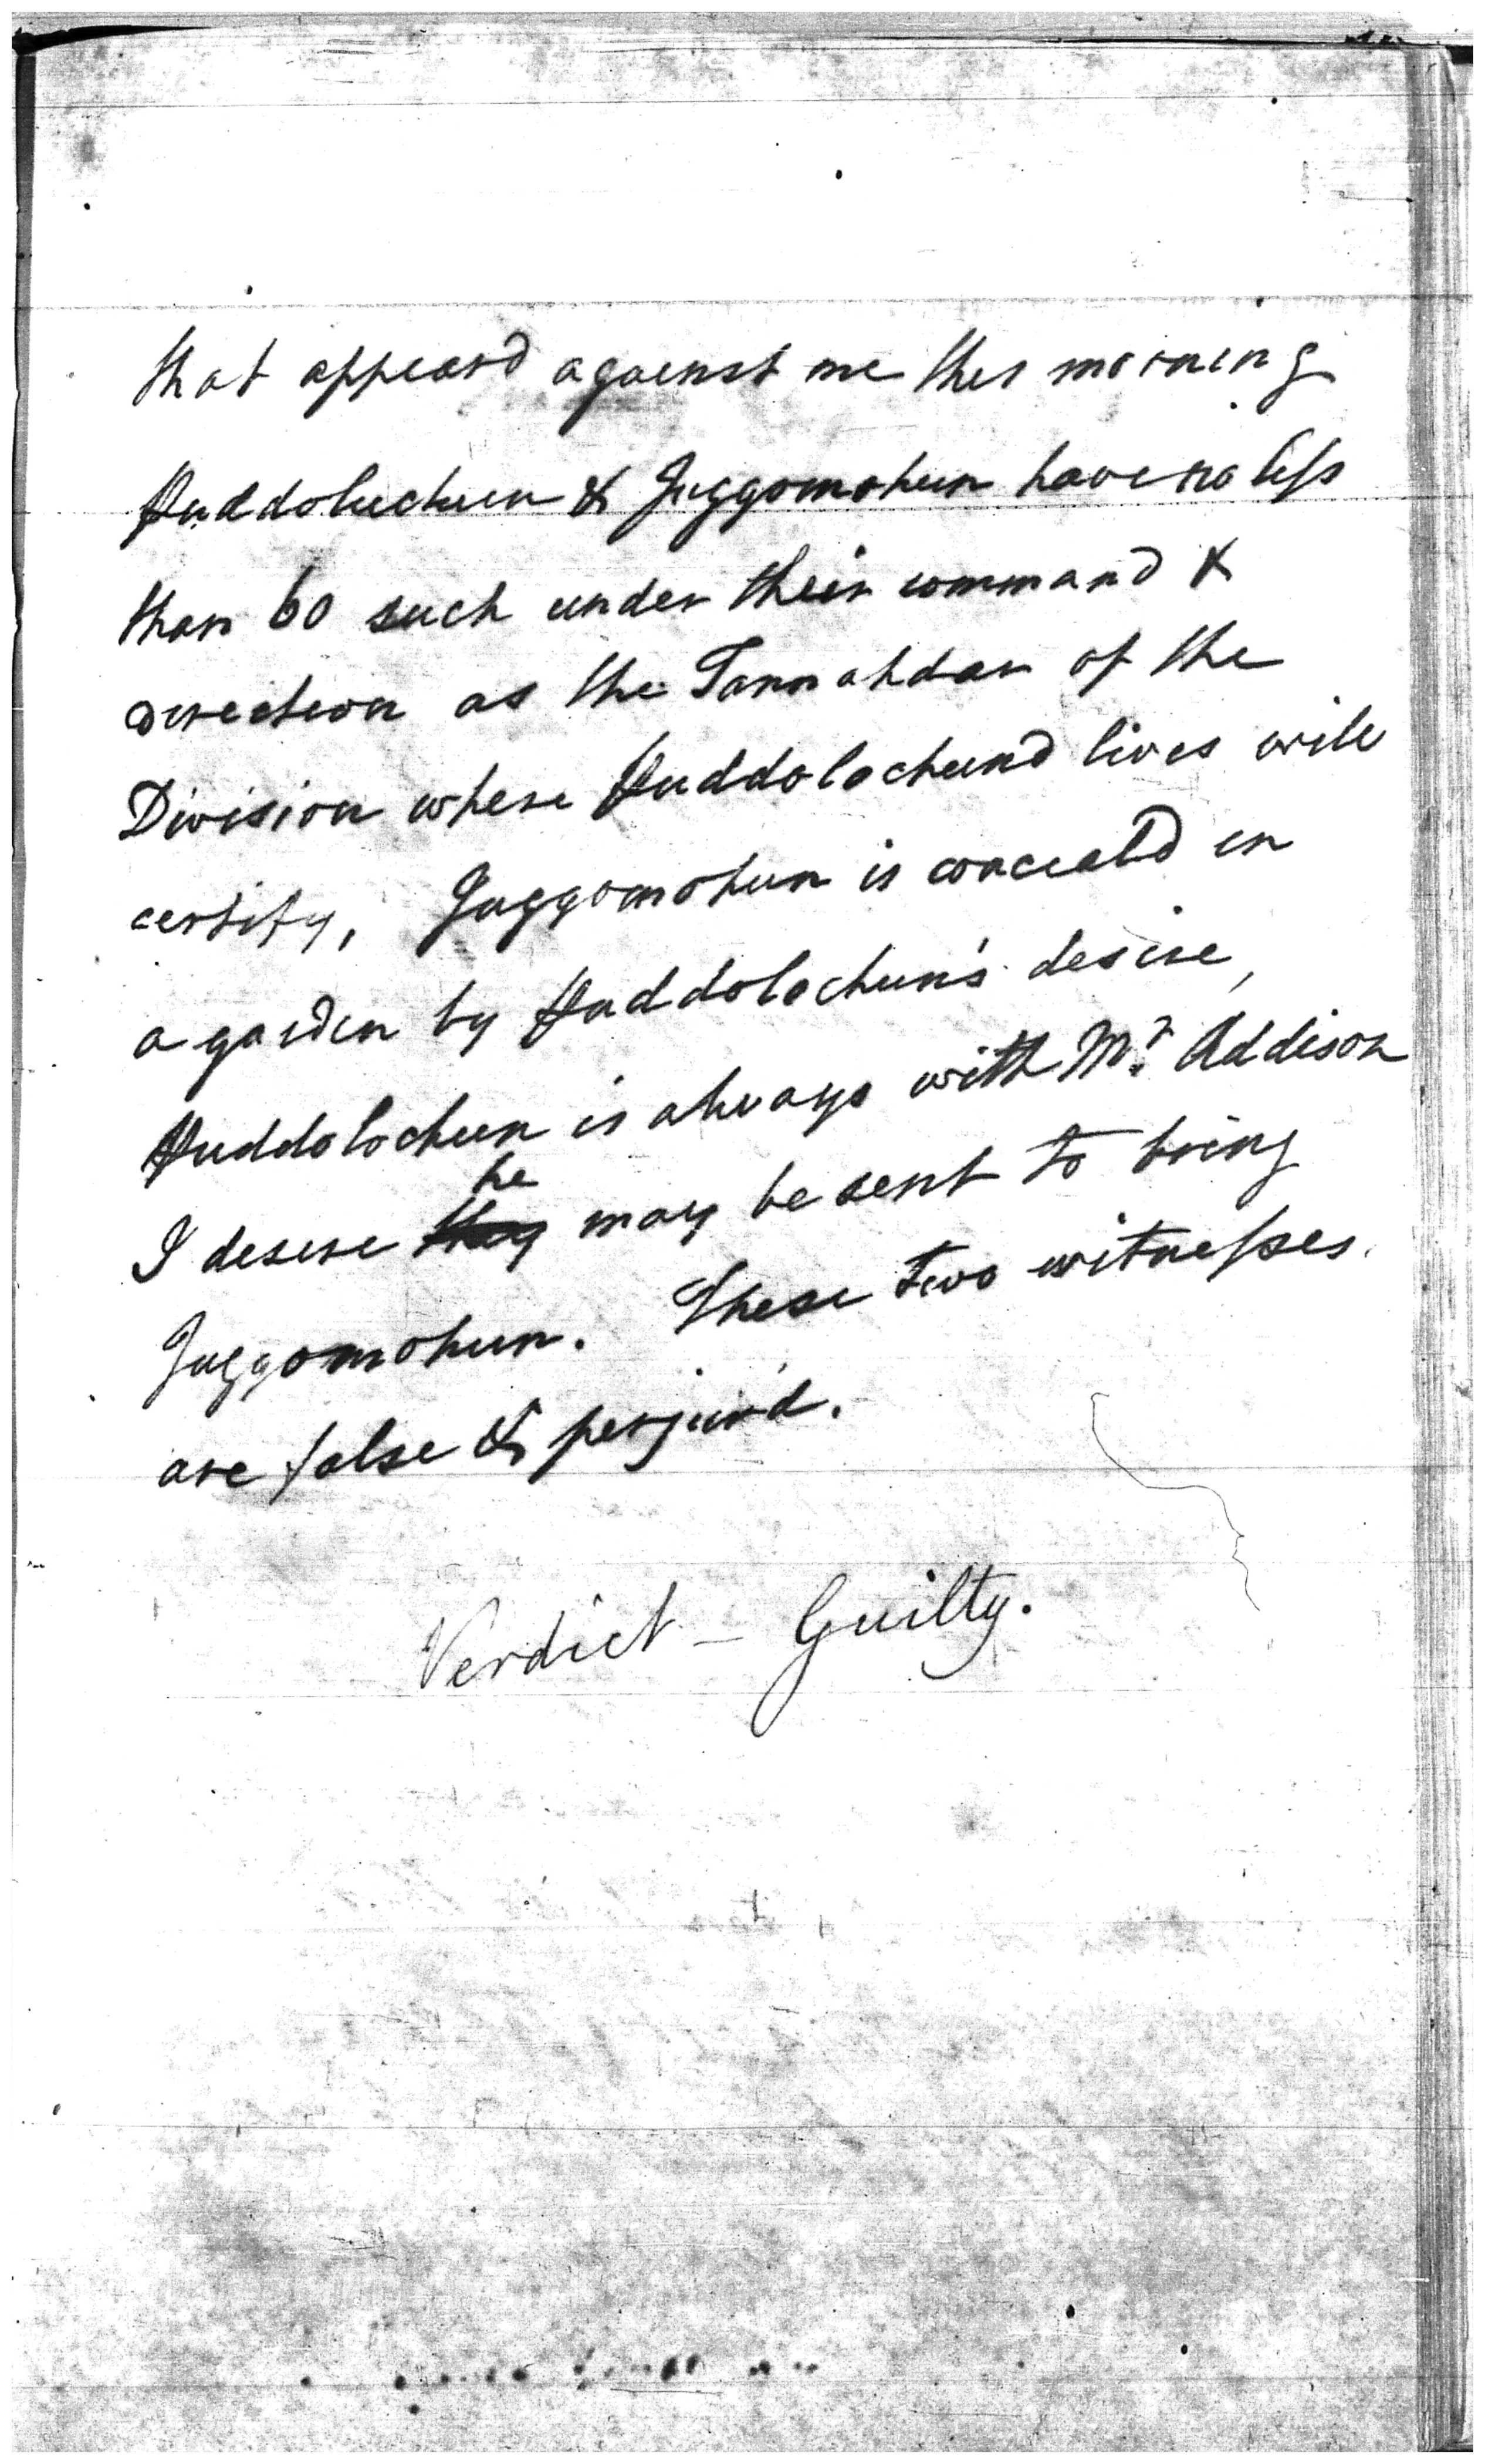 that appeard against me this morning
Huddoluchun & Juggomohun have no less
than 60 such under their command &
direction as the Tannahdar of the
Division where Huddolochund lives will
certify, Juggomohun is conceald in
a garden by Huddolochun's desire,
Huddolochun is always with Mr. Addison
I desire he may be sent to bring
Juggomohun. These two witnesses
are false & perjur'd.
Verdict - Guilty.